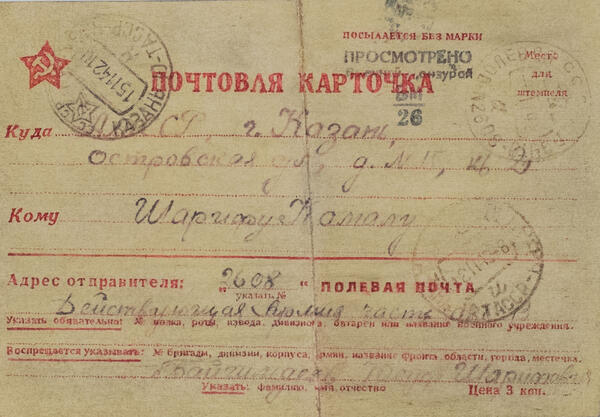 ПОСЫЛАЕТСЯ БЕЗ МАРКИ
ПРОСМОТРЕНО
Военной Цензурой
26
Место
для
штемпеля
ПОЧТОВАЯ КАРТОЧКА
КАЗАНЬ ТАССР
Куда ТАССР, г. Казань,
Островская ул, д. №
Кому Шарифу Камалу
Адрес отправителя: „2608“ ПОЛЕВАЯ ПОЧТА
указать №
Действующая Армия часть
Указать обязательно: № полка, роты, взвода, дивизиона, батареи или название военного учреждения.
Воспрещается указывать: № бригады, дивизии, корпуса, армии, название фронта, области, города, местечка.
Шарипович
Указать: фамилию, имя, отчество
Цена 3 коп.